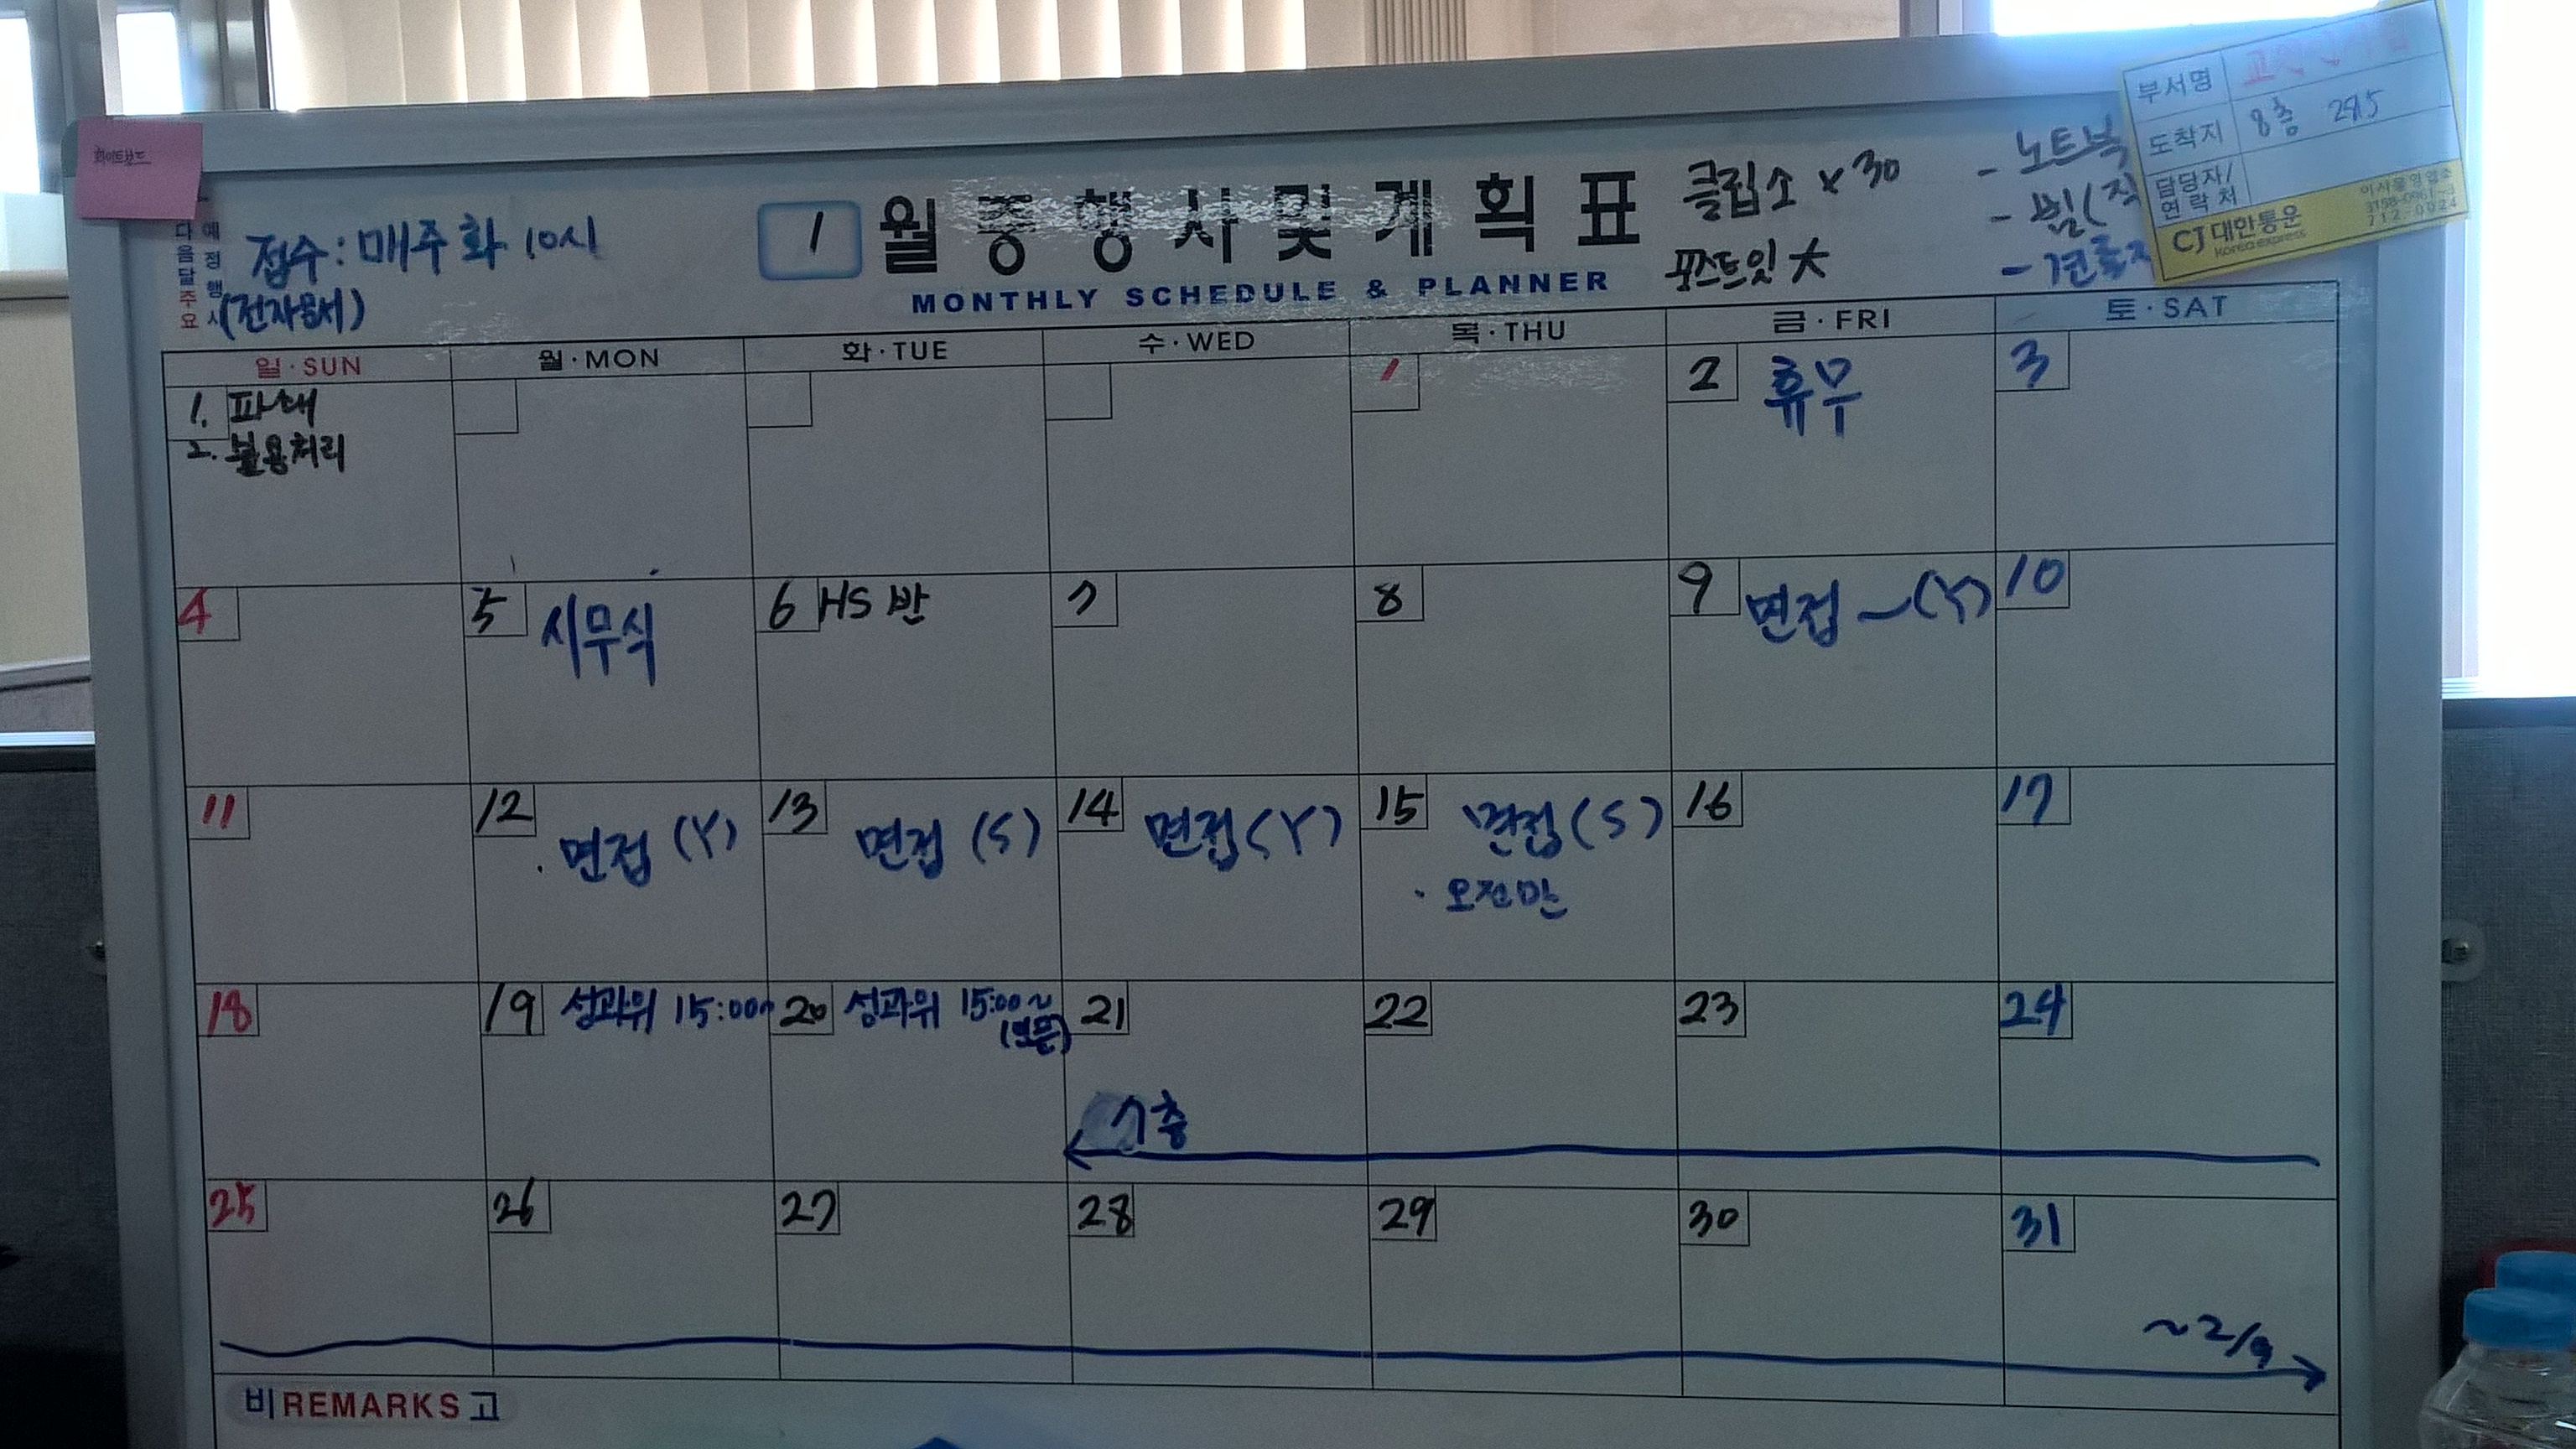 화이트보드
다음달 주요
예정행사
접수: 매주 화 10시
(전자문서)
1 월중행사및계획표
MONTHLY SCHEDULE & PLANNER
클립 소 x 30
포스트잇 大
- 노트북
-
-
부서명
도착지 8층 285
담당자/
연락처
CJ 대한통운
Korea express
712-0024
일·SUN 월·MON 화·TUE 수·WED 목·THU 금·FRI 토·SAT
1. 파쇄
2. 불용처리
1 2 휴무 3
4 5 시무식 6 HS 반 7 8 9 면접 ~(Y) 10
11 12 면접 (Y) 13 면접 (S) 14 면접 (Y) 15 면접 (S) 16 17
· 오전만
18 19 성과위 15:00~ 20 성과위 15:00~ 21 22 23 24
7층
25 26 27 28 29 30 31
~2/9
비 REMARKS 고